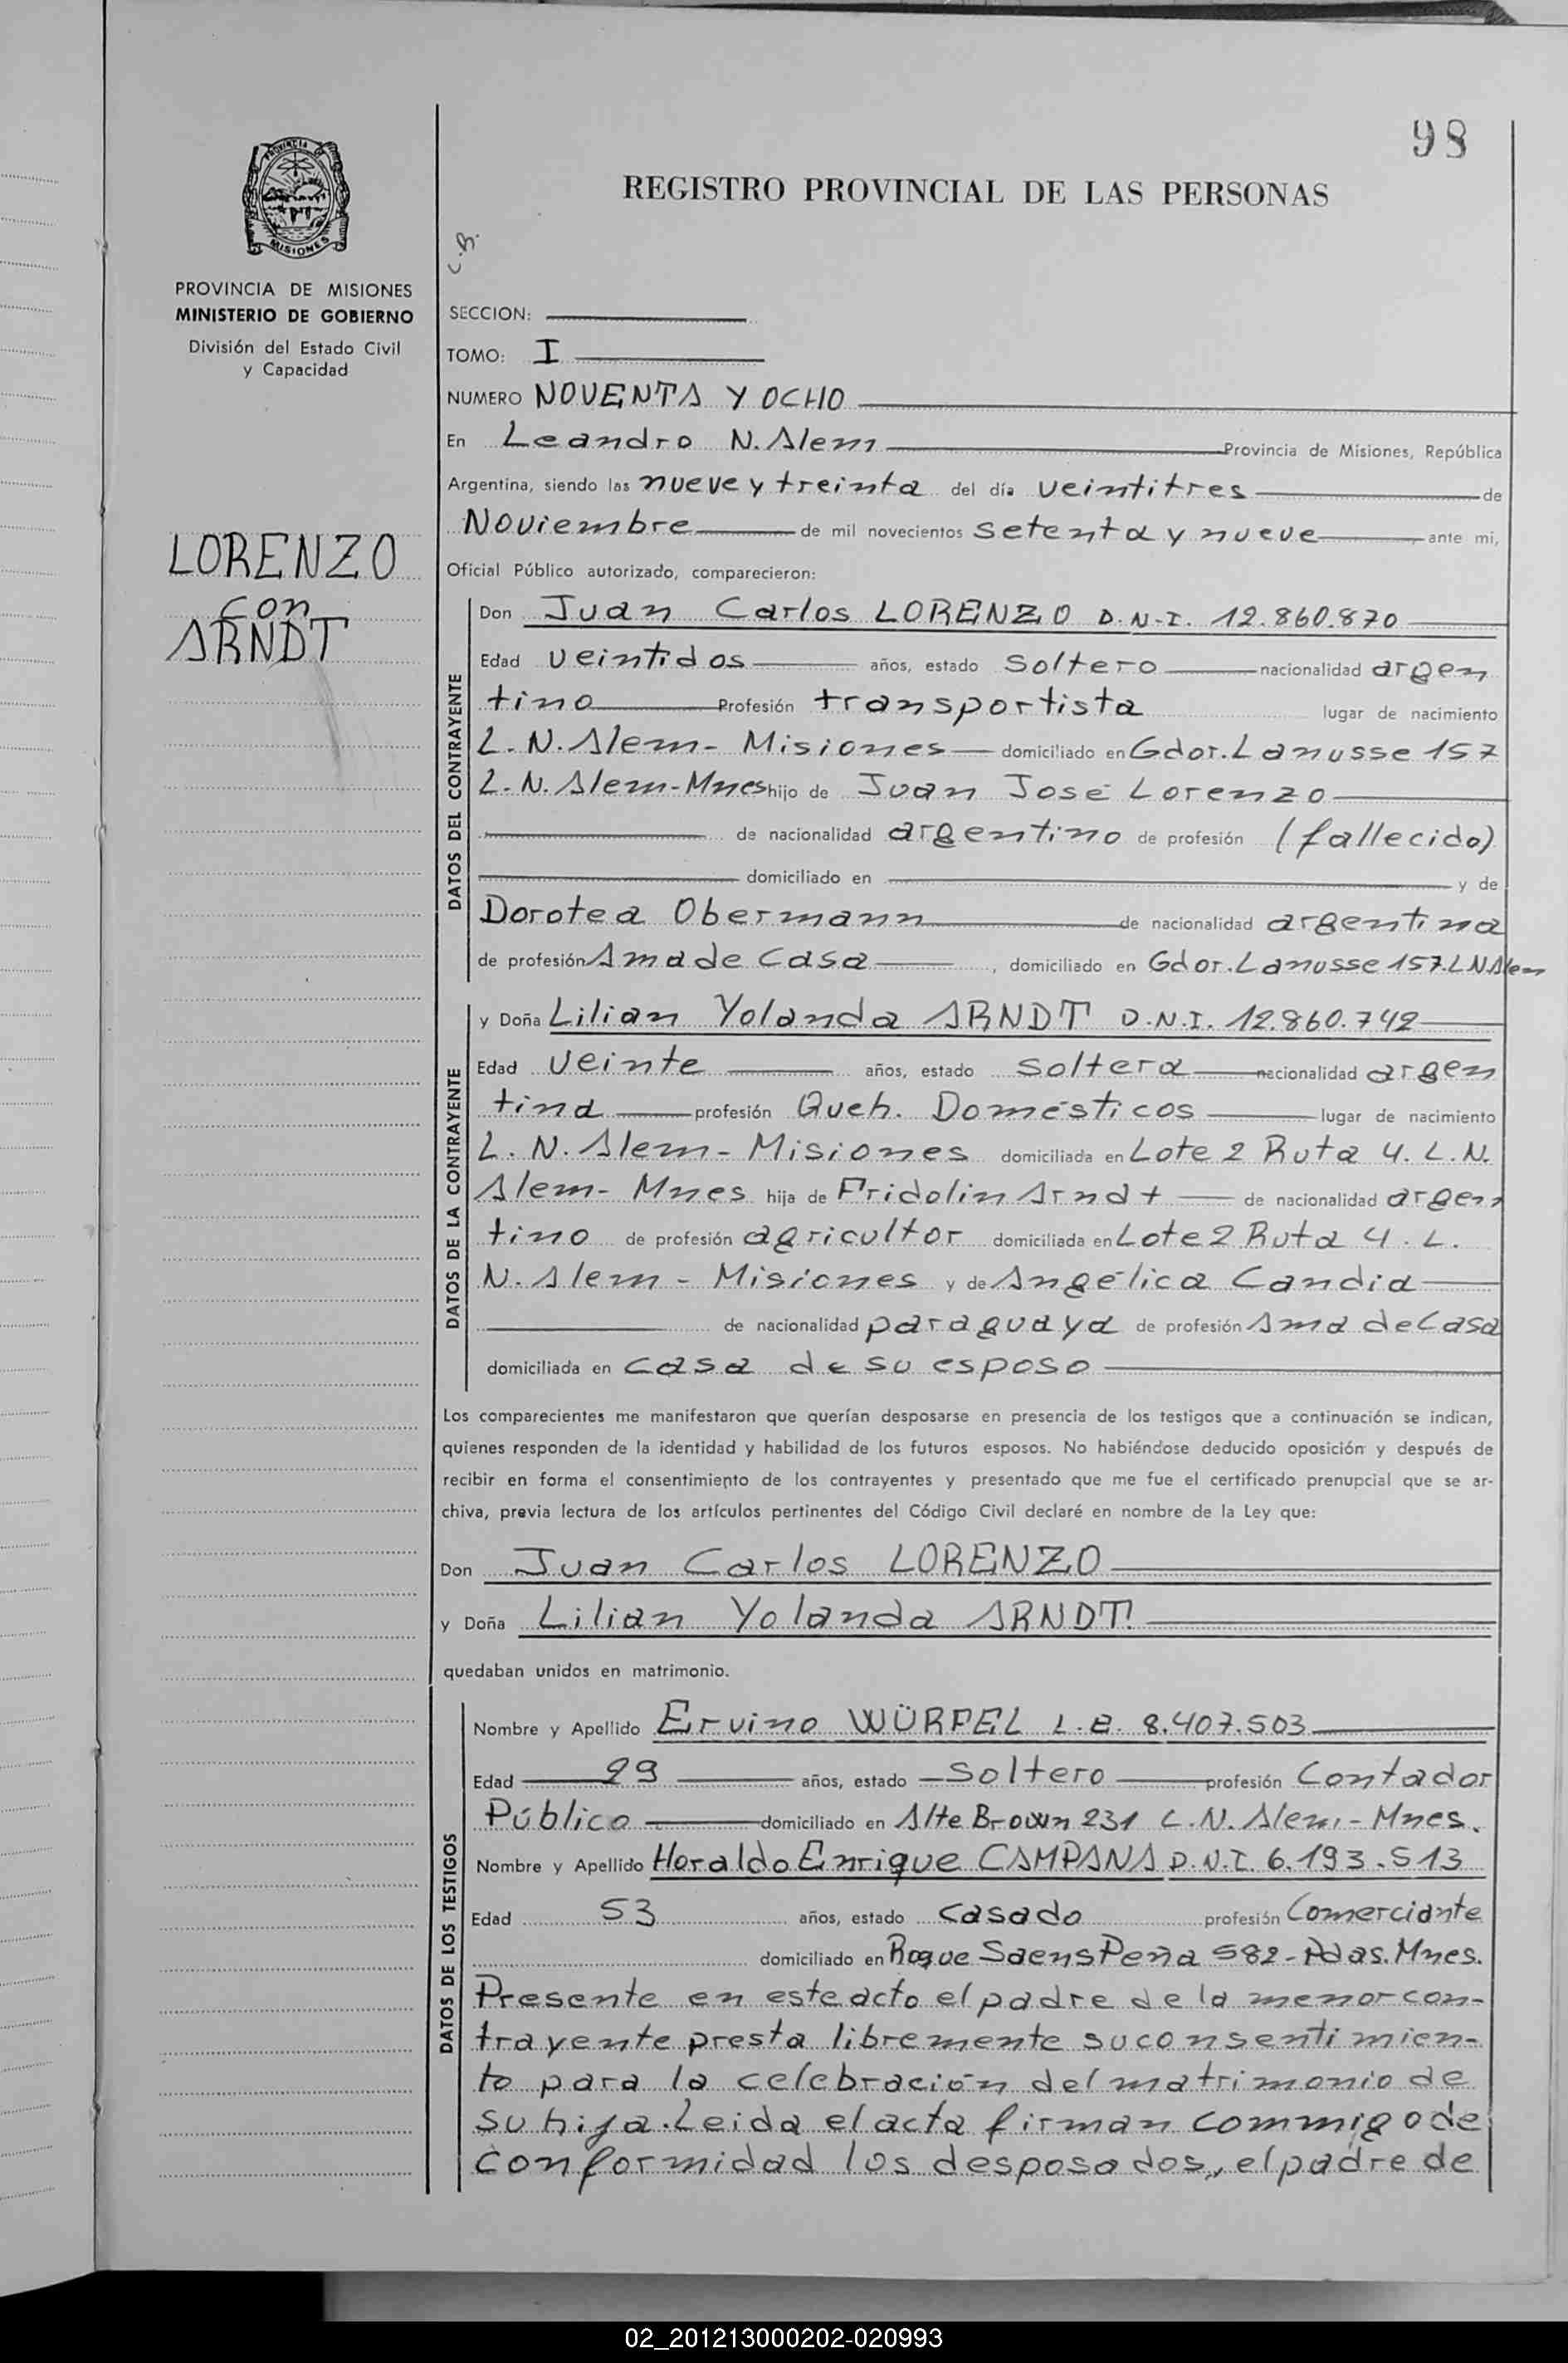 98
REGISTRO PROVINCIAL DE LAS PERSONAS
PROVINCIA DE MISIONES
PROVINCIA DE MISIONES
MINISTERIO DE GOBIERNO
División del Estado Civil
y Capacidad
LORENZO
con
ARNDT
SECCION:
TOMO: I
NUMERO NOVENTA Y OCHO
En Leandro N. Alem Provincia de Misiones, República
Argentina, siendo las nueve y treinta del día veintitres de
Noviembre de mil novecientos setenta y nueve ante mi,
Oficial Público autorizado, comparecieron:
DATOS DEL CONTRAYENTE
Don Juan Carlos LORENZO D.N.I. 12.860.870
Edad veintidos años, estado soltero nacionalidad argen
tino Profesión transportista lugar de nacimiento
L.N. Alem - Misiones domiciliado en Gdor. Lanusse 157
L.N. Alem-Mnes hijo de Juan José Lorenzo
de nacionalidad argentino de profesión (fallecido)
domiciliado en y de
Dorotea Obermann de nacionalidad argentina
de profesión Ama de Casa, domiciliado en Gdor. Lanusse 157. L N Alem
DATOS DE LA CONTRAYENTE
y Doña Lilian Yolanda ARNDT D.N.I. 12.860.742
Edad veinte años, estado soltera nacionalidad argen
tina profesión Queh. Domésticos lugar de nacimiento
L. N. Alem - Misiones domiciliada en Lote 2 Ruta 4. L.N.
Alem - Mnes hija de Fridolin Arndt de nacionalidad argen
tino de profesión agricultor domiciliada en Lote 2 Ruta 4. L.
N. Alem - Misiones y de Angélica Candia
de nacionalidad paraguaya de profesión Ama de Casa
domiciliada en casa de su esposo
Los comparecientes me manifestaron que querían desposarse en presencia de los testigos que a continuación se indican,
quienes responden de la identidad y habilidad de los futuros esposos. No habiéndose deducido oposición y después de
recibir en forma el consentimiento de los contrayentes y presentado que me fue el certificado prenupcial que se ar-
chiva, previa lectura de los artículos pertinentes del Código Civil declaré en nombre de la Ley que:
Don Juan Carlos LORENZO
y Doña Lilian Yolanda ARNDT.
quedaban unidos en matrimonio.
DATOS DE LOS TESTIGOS
Nombre y Apellido Ervino WÜRFEL L.E. 8.407.503
Edad 29 años, estado soltero profesión Contador
Público domiciliado en Alte Brown 231 L.N. Alem - Mnes.
Nombre y Apellido Horaldo Enrique CAMPANA D.N.I. 6.193.513
Edad 53 años, estado casado profesión Comerciante
domiciliado en Roque Saens Peña 582 - Pdas. Mnes.
Presente en este acto el padre de la menor con-
trayente presta libremente su consentimien-
to para la celebración del matrimonio de
su hija. Leida el acta firman commigo de
conformidad los desposados, el padre de
02_201213000202-020993